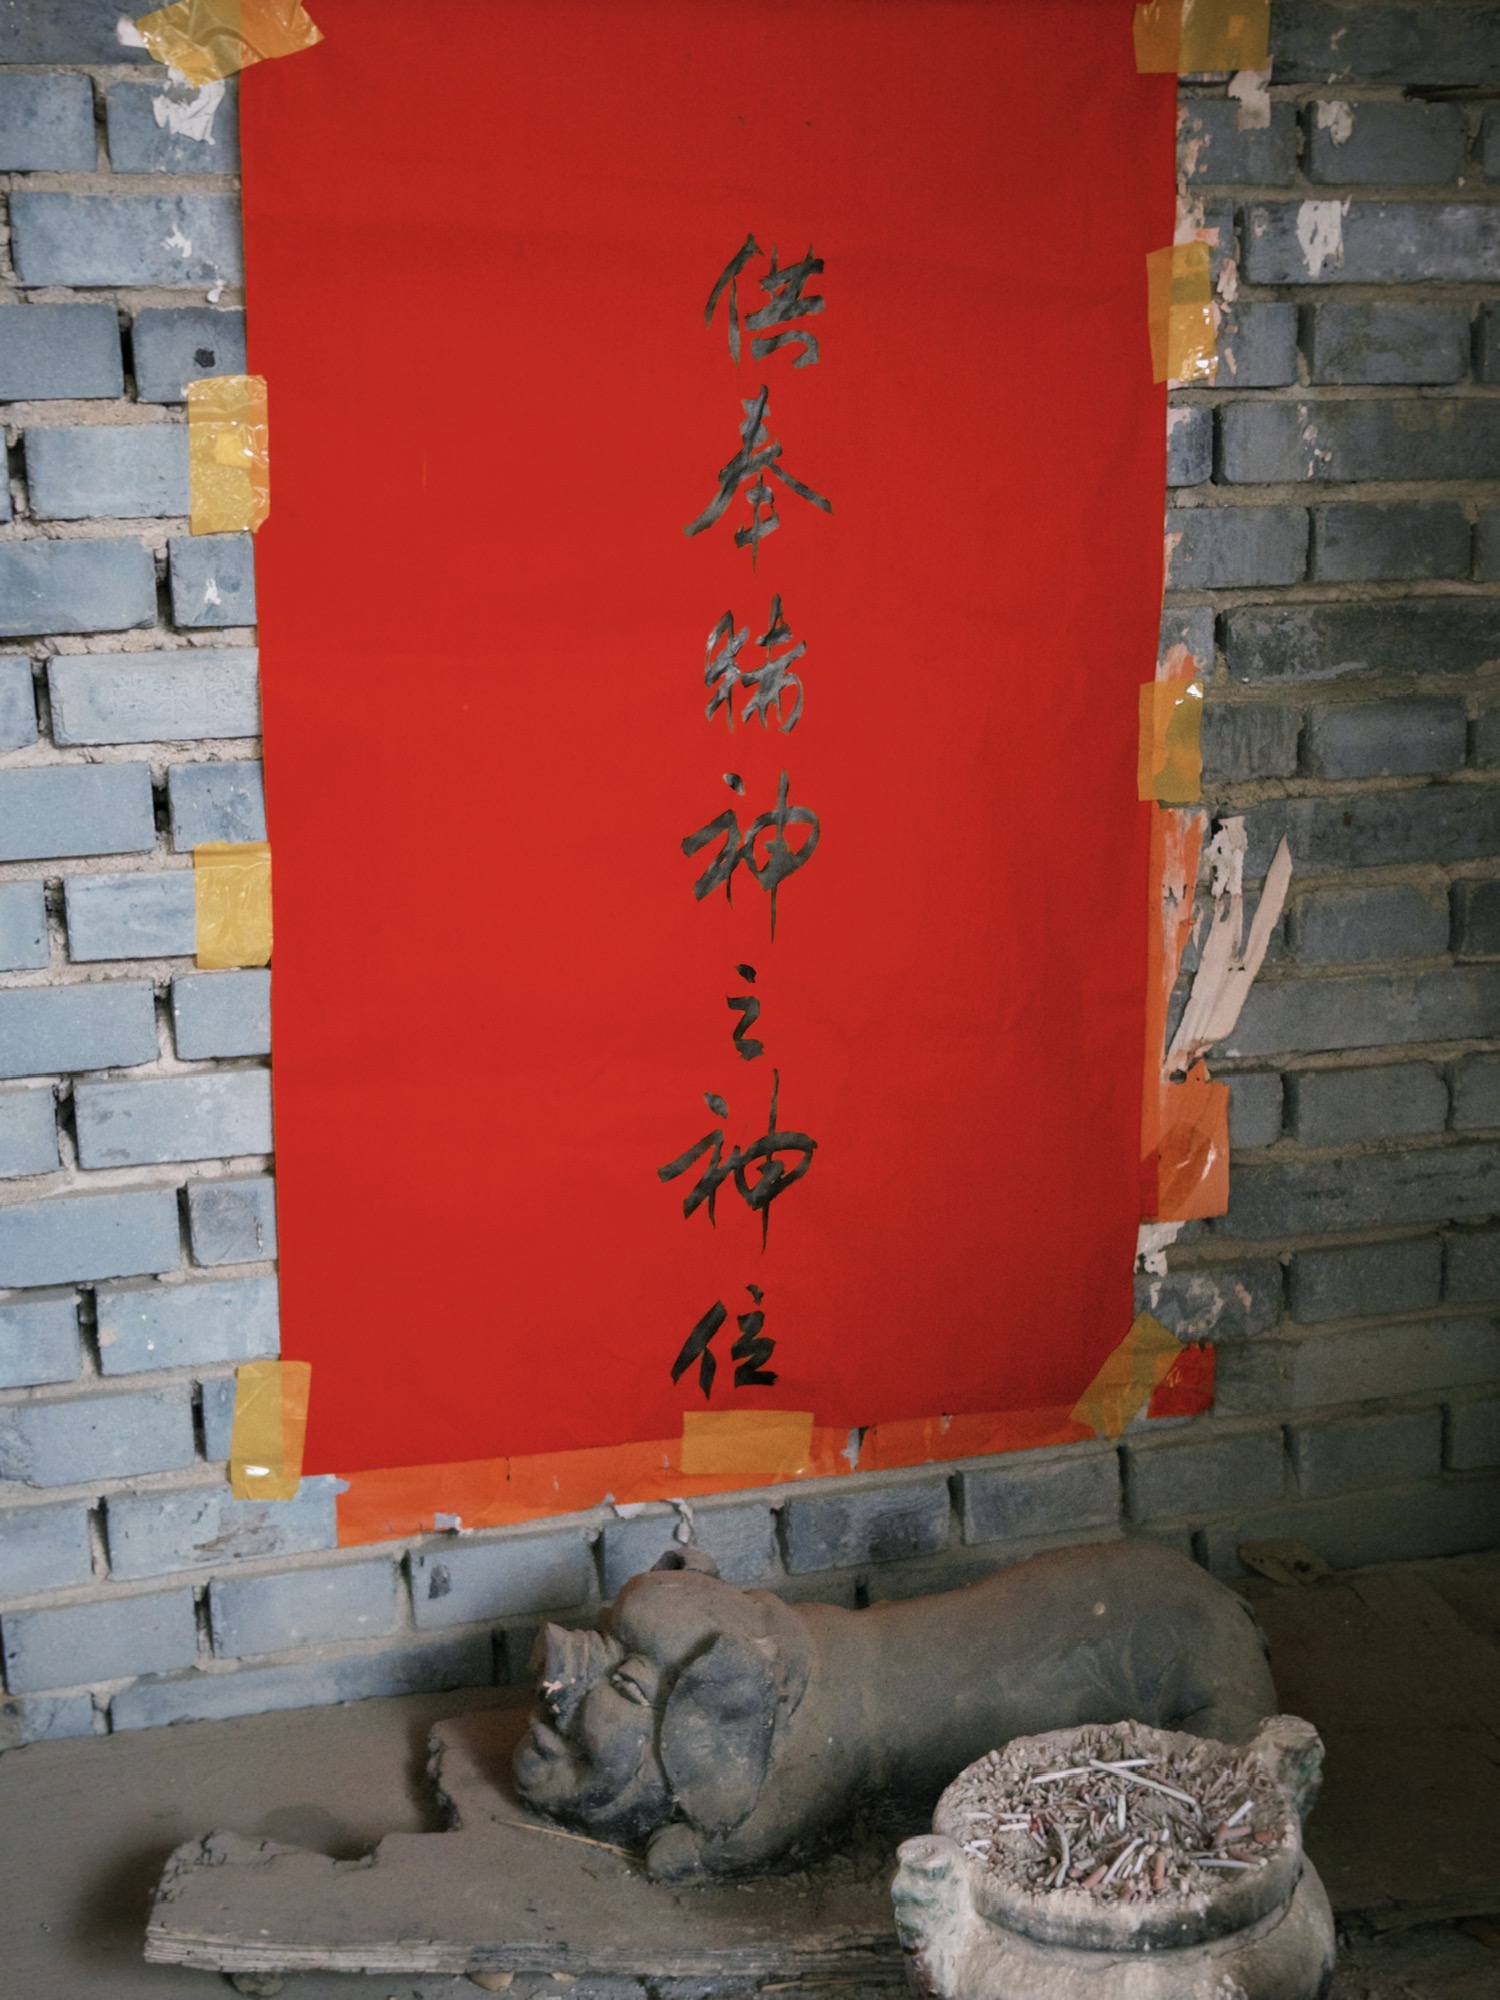 供奉神之神位